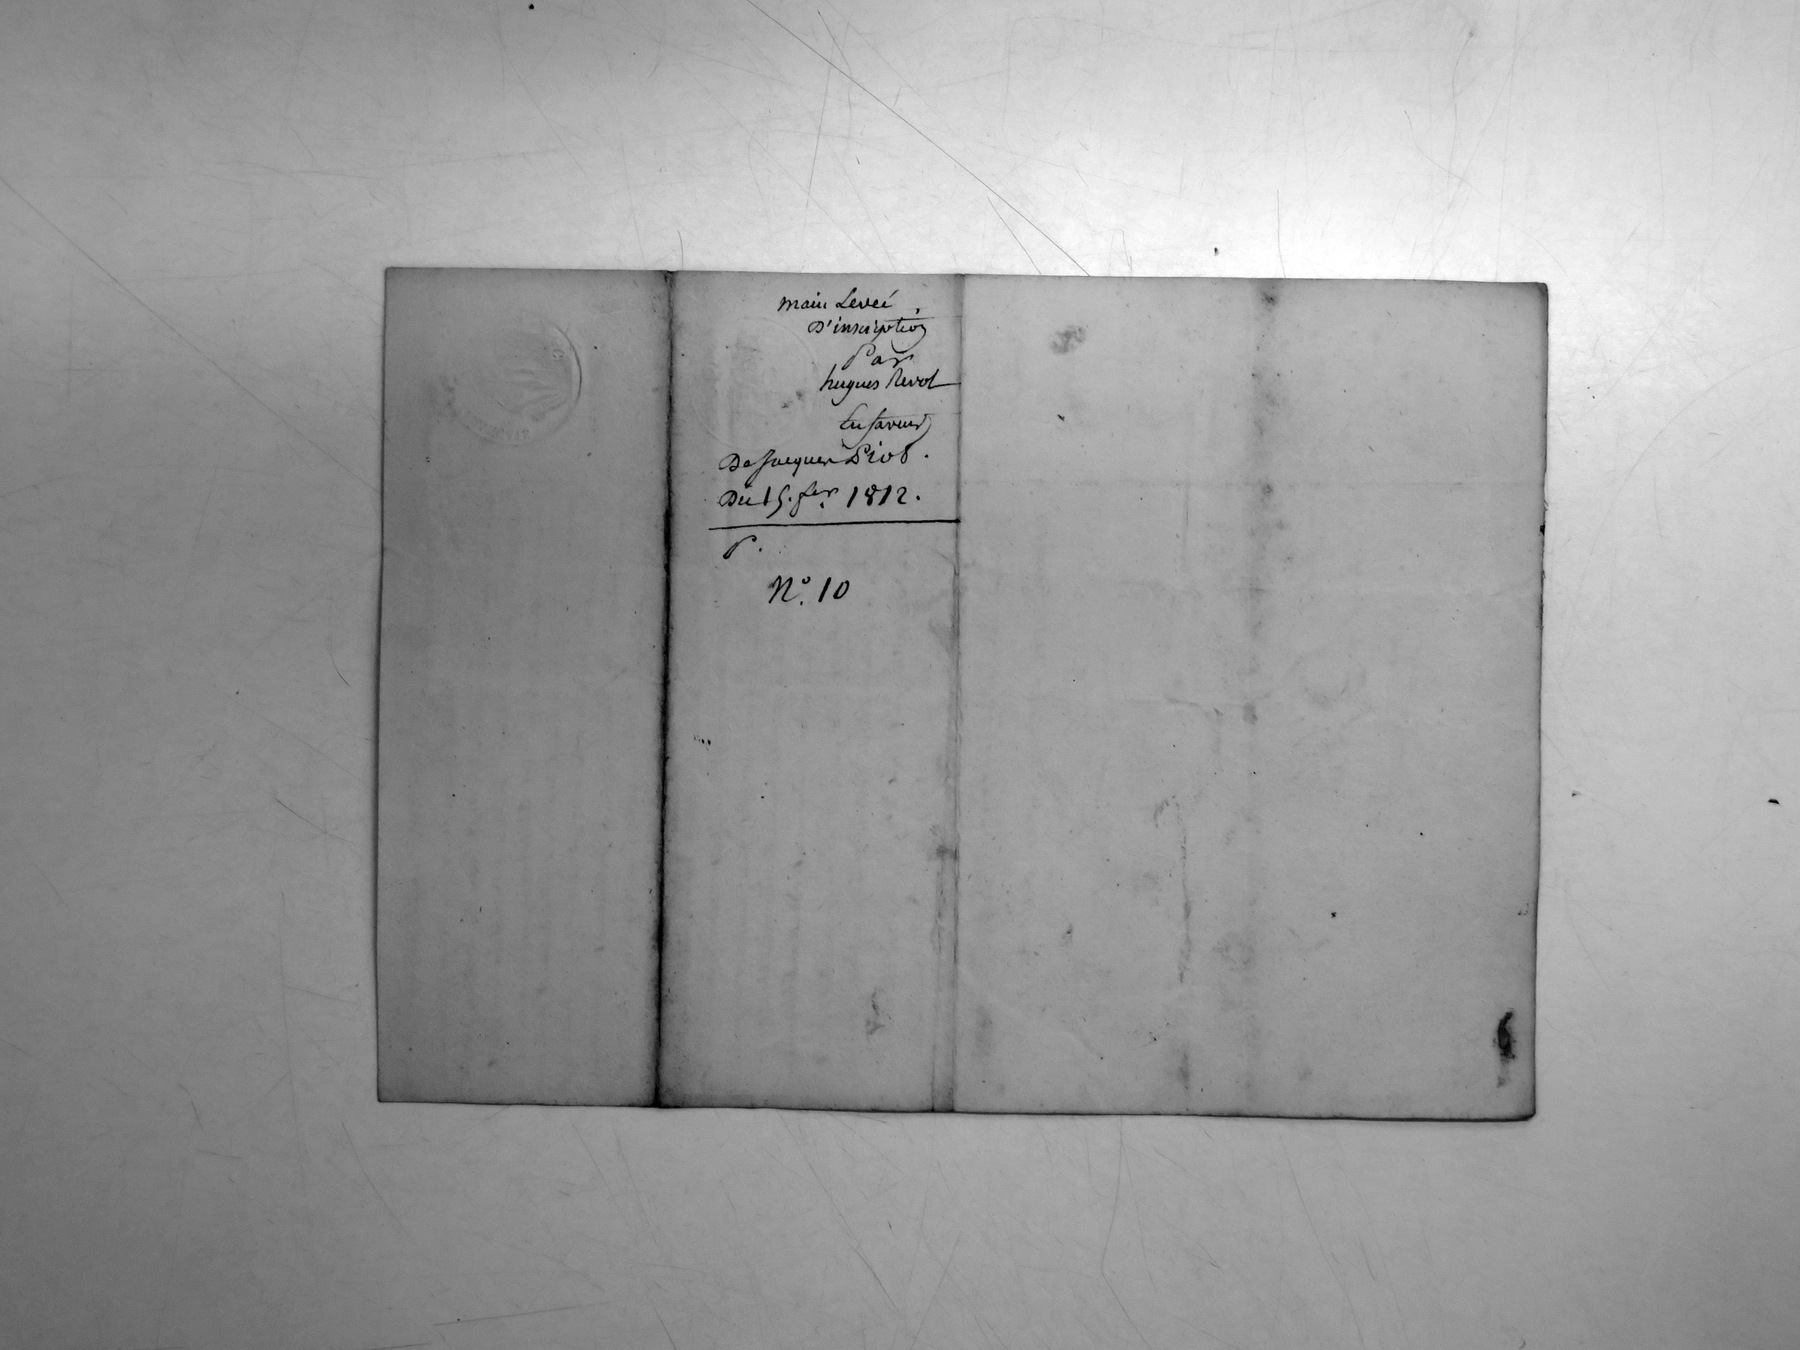 main Leveé
D'inscription
Par
hugues Revol
En faveur
De Jacques Piot.
Du 15. fer. 1812.
P.
N.° 10